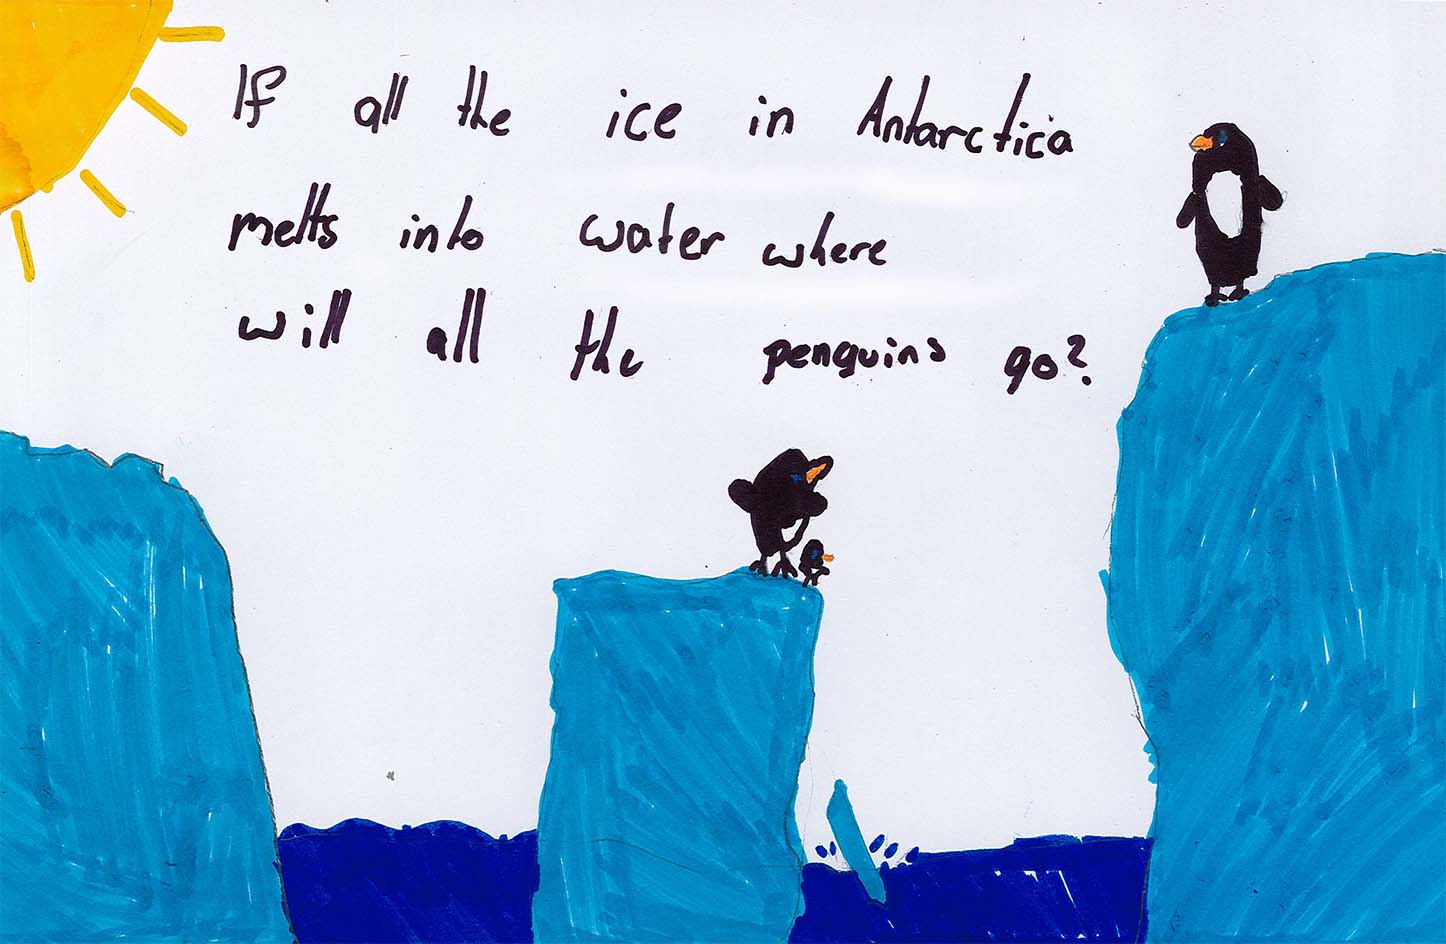 If all the ice in Antarctica
melts into water where
will all the penguins go?